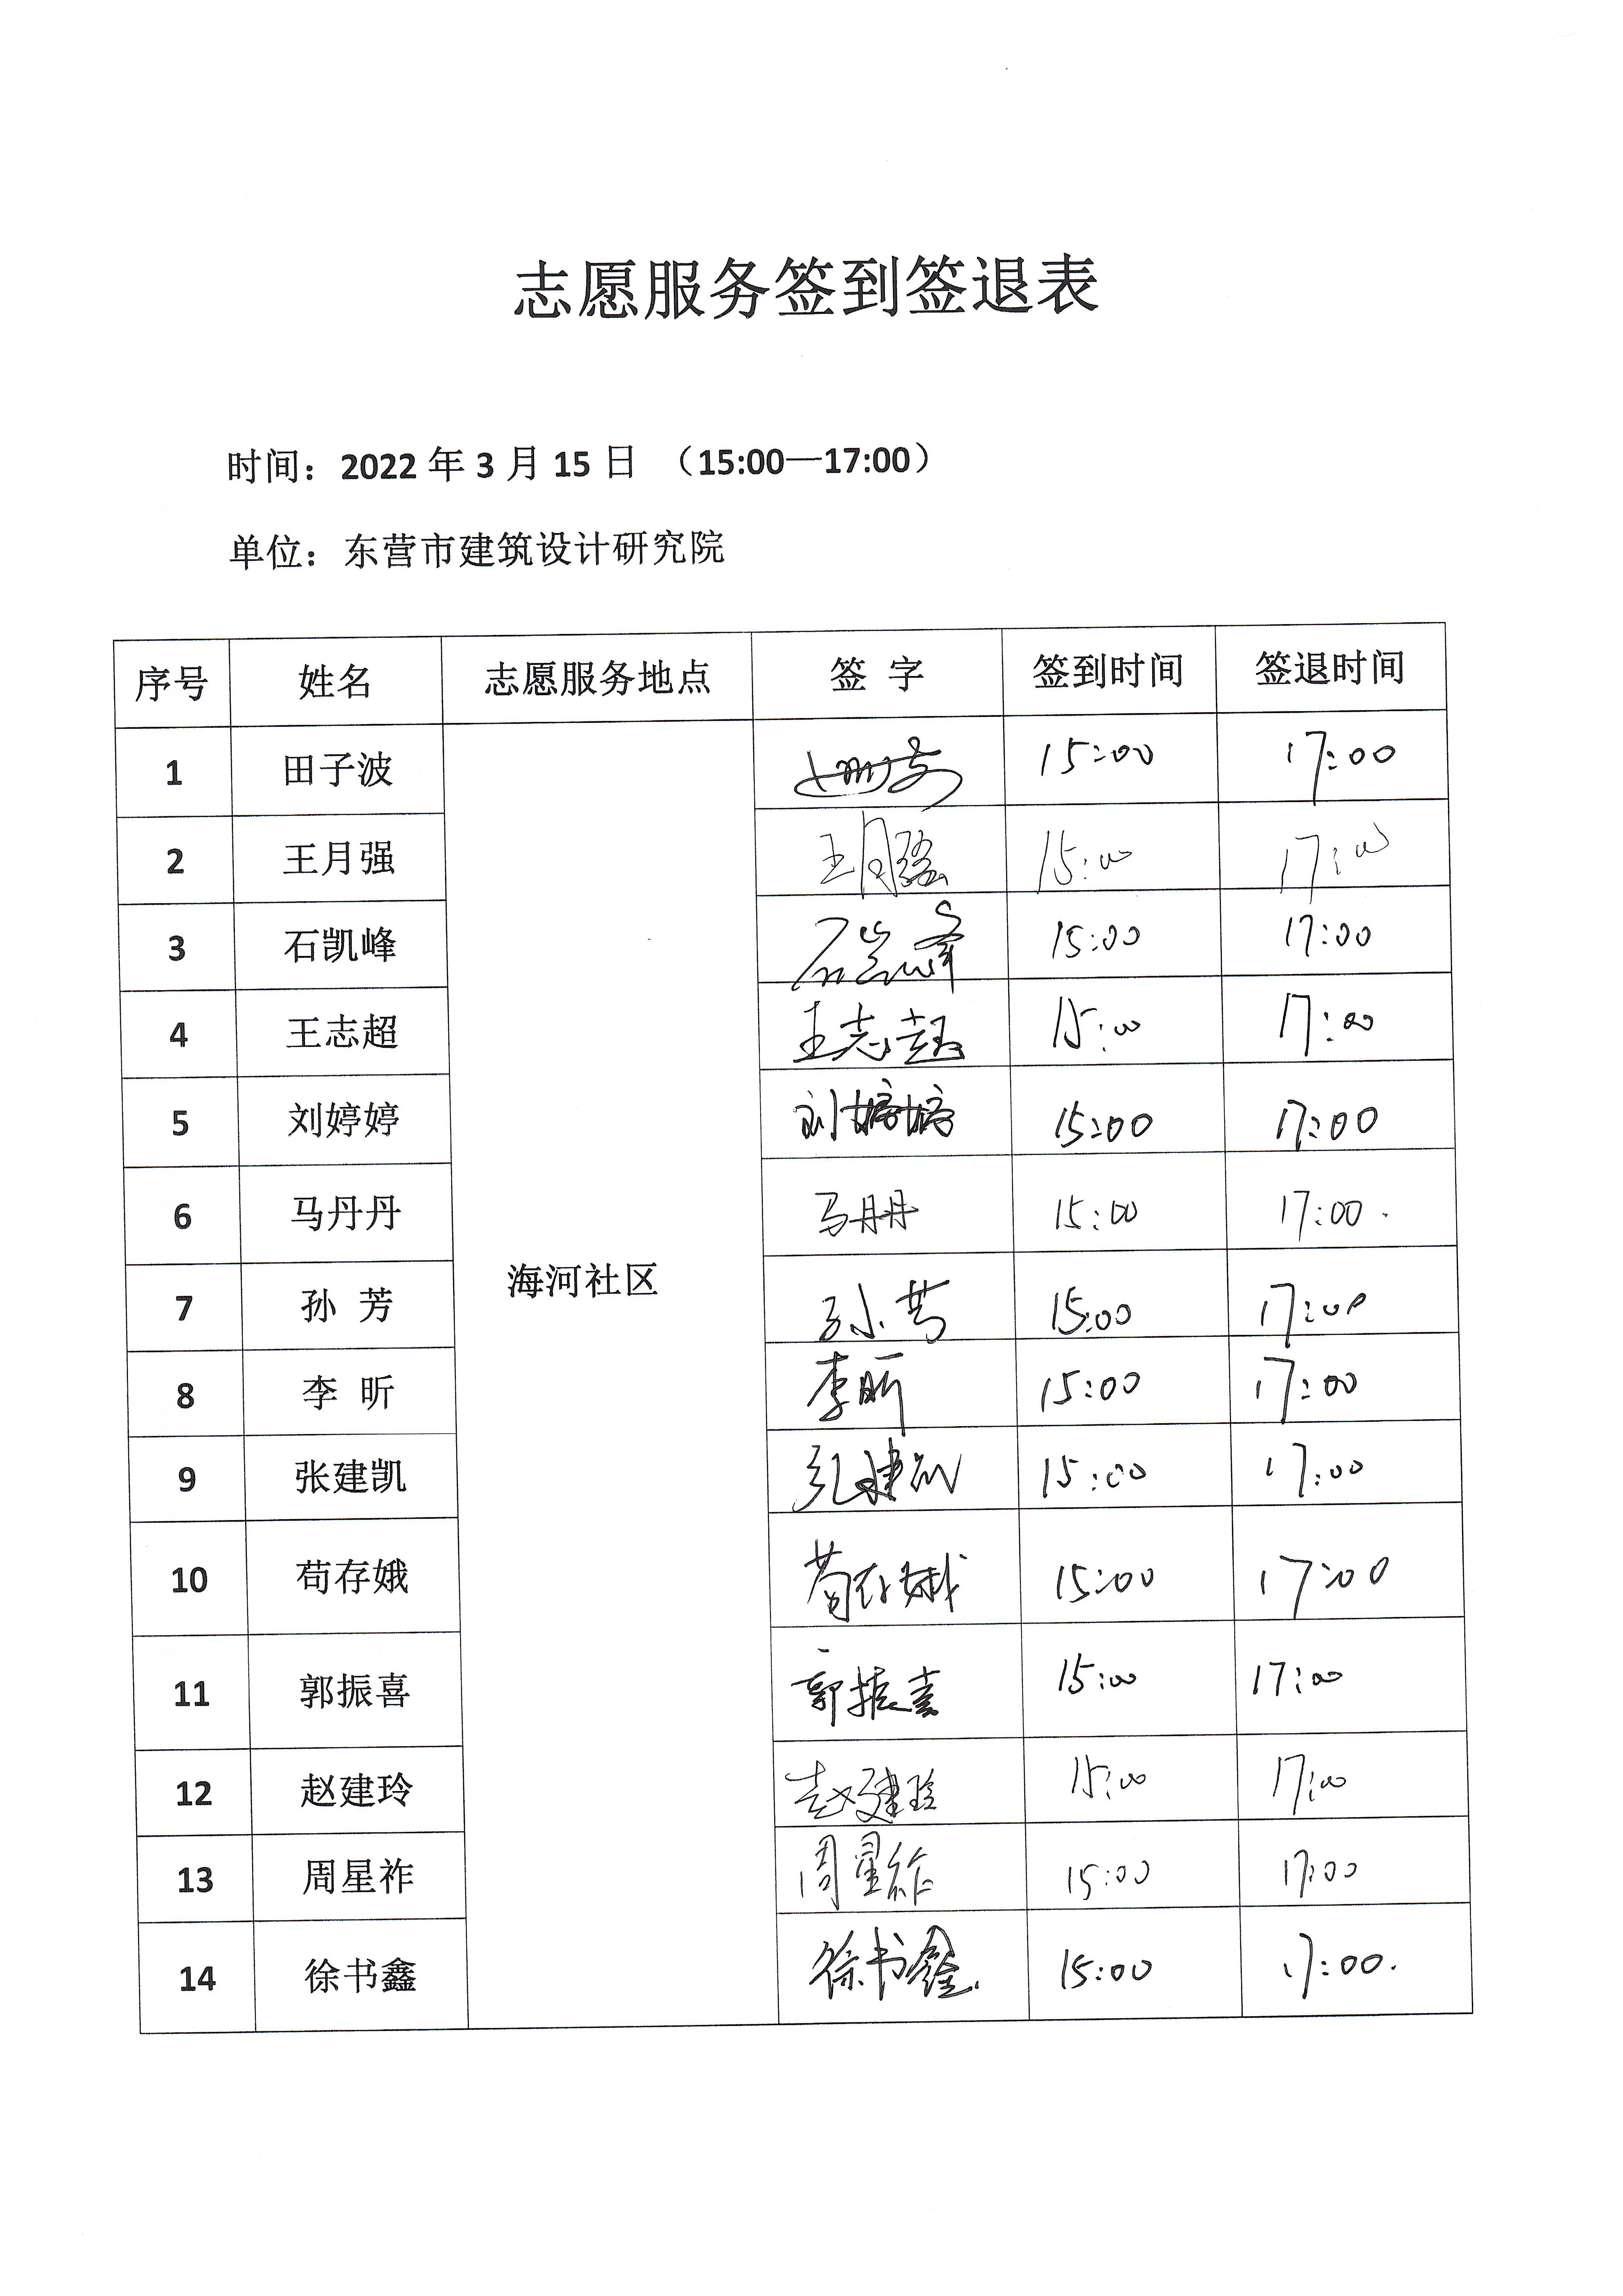 志愿服务签到签退表
时间：2022年3月15日 （15:00—17:00）
单位：东营市建筑设计研究院
序号 姓名 志愿服务地点 签 字 签到时间 签退时间
1 田子波 15:00 17:00
2 王月强 王月强 15:00 17:00
3 石凯峰 石凯峰 15:00 17:00
4 王志超 王志超 15:00 17:00
5 刘婷婷 刘婷婷 15:00 17:00
6 马丹丹 马丹丹 15:00 17:00.
海河社区
7 孙 芳 孙芳 15:00 17:00
8 李 昕 李昕 15:00 17:00
9 张建凯 张建凯 15:00 17:00
10 苟存娥 苟存娥 15:00 17:00
11 郭振喜 郭振喜 15:00 17:00
12 赵建玲 赵建玲 15:00 17:00
13 周星祚 周星祚 15:00 17:00
14 徐书鑫 徐书鑫. 15:00 17:00.